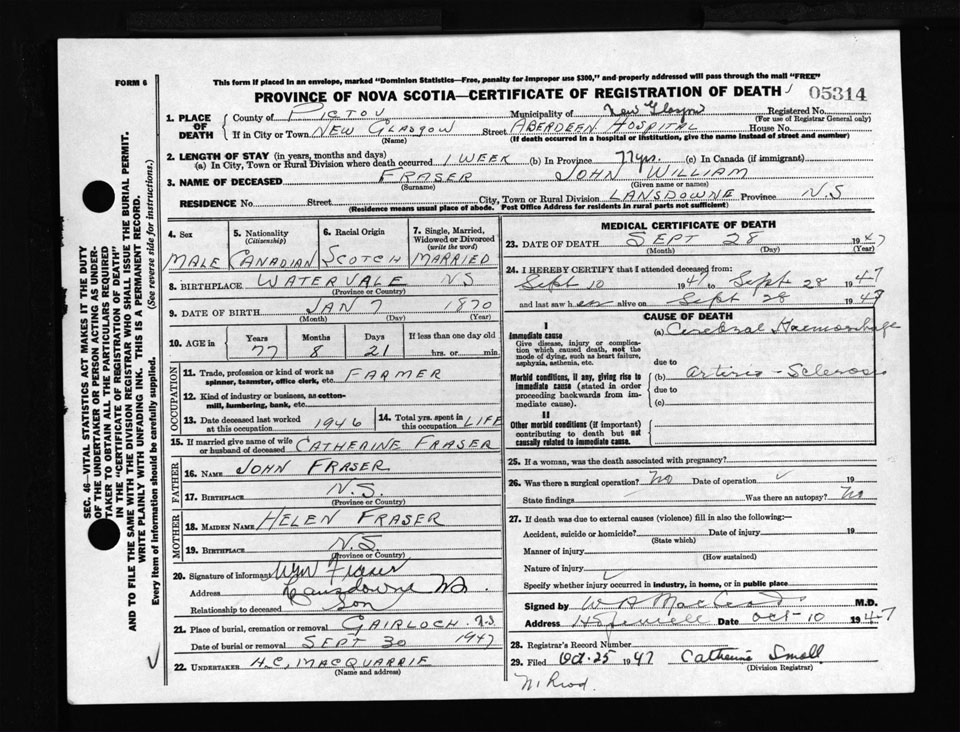 FORM 6
This form if placed in an envelope, marked "Dominion Statistics—Free, penalty for improper use $300," and properly addressed will pass through the mail "FREE"
PROVINCE OF NOVA SCOTIA—CERTIFICATE OF REGISTRATION OF DEATH
05314
SEC. 46—VITAL STATISTICS ACT MAKES IT THE DUTY
OF THE UNDERTAKER OR PERSON ACTING AS UNDER-
TAKER TO OBTAIN ALL THE PARTICULARS REQUIRED
IN THE "CERTIFICATE OF REGISTRATION OF DEATH"
AND TO FILE THE SAME WITH THE DIVISION REGISTRAR WHO SHALL ISSUE THE BURIAL PERMIT.
WRITE PLAINLY WITH UNFADING INK—THIS IS A PERMANENT RECORD.
Every item of information should be carefully supplied. (See reverse side for instructions.)
1. PLACE OF DEATH
County of PICTOU Municipality of New Glasgow Registered No.
(For use of Registrar General only)
If in City or Town NEW GLASGOW Street ABERDEEN HOSPITAL House No.
(Name) (If death occurred in a hospital or institution, give the name instead of street and number)
2. LENGTH OF STAY (in years, months and days)
(a) In City, Town or Rural Division where death occurred 1 WEEK (b) In Province 77 yrs. (c) In Canada (if immigrant)
3. NAME OF DECEASED FRASER JOHN WILLIAM
(Surname) (Given name or names)
RESIDENCE No. Street City, Town or Rural Division LANSDOWNE Province N.S
(Residence means usual place of abode. Post Office Address for residents in rural parts not sufficient)
4. Sex MALE
5. Nationality (Citizenship) CANADIAN
6. Racial Origin SCOTCH
7. Single, Married, Widowed or Divorced (write the word) MARRIED
8. BIRTHPLACE WATERVALE NS
(Province or Country)
9. DATE OF BIRTH JAN 7 1870
(Month) (Day) (Year)
10. AGE in Years Months Days If less than one day
77 8 21 hrs. or min.
OCCUPATION
11. Trade, profession or kind of work as spinner, teamster, office clerk, etc. FARMER
12. Kind of industry or business, as cotton-mill, lumbering, bank, etc.
13. Date deceased last worked at this occupation 1946
14. Total yrs. spent in this occupation LIFE
15. If married give name of wife or husband of deceased CATHERINE FRASER
FATHER
16. NAME JOHN FRASER
17. BIRTHPLACE N.S.
(Province or Country)
MOTHER
18. MAIDEN NAME HELEN FRASER
19. BIRTHPLACE N.S.
(Province or Country)
20. Signature of informant Wm Fraser
Address Lansdowne NS.
Relationship to deceased Son
21. Place of burial, cremation or removal GAIRLOCH N.S.
Date of burial or removal SEPT 30 1947
22. UNDERTAKER H.C. MACQUARRIE
(Name and address)
MEDICAL CERTIFICATE OF DEATH
23. DATE OF DEATH SEPT 28 1947
(Month) (Day) (Year)
24. I HEREBY CERTIFY that I attended deceased from:
Sept 10 1947 to Sept 28 1947
and last saw h alive on Sept 28 1947
CAUSE OF DEATH
I
Immediate cause
Give disease, injury or complication which caused death, not the mode of dying, such as heart failure, asphyxia, asthenia, etc.
(a) Cerebral Haemorrhage
due to
Morbid conditions, if any, giving rise to immediate cause (stated in order proceeding backwards from immediate cause).
(b) Arterio-Sclerosis
due to
(c)
II
Other morbid conditions (if important) contributing to death but not causally related to immediate cause.
25. If a woman, was the death associated with pregnancy?
26. Was there a surgical operation? No Date of operation 19
State findings Was there an autopsy? No
27. If death was due to external causes (violence) fill in also the following:—
Accident, suicide or homicide? Date of injury 19
(State which)
Manner of injury
(How sustained)
Nature of injury
Specify whether injury occurred in industry, in home, or in public place
Signed by M.D.
Address Date Oct-10 1947
28. Registrar's Record Number
29. Filed Oct. 25 1947 Catherine Small
(Division Registrar)